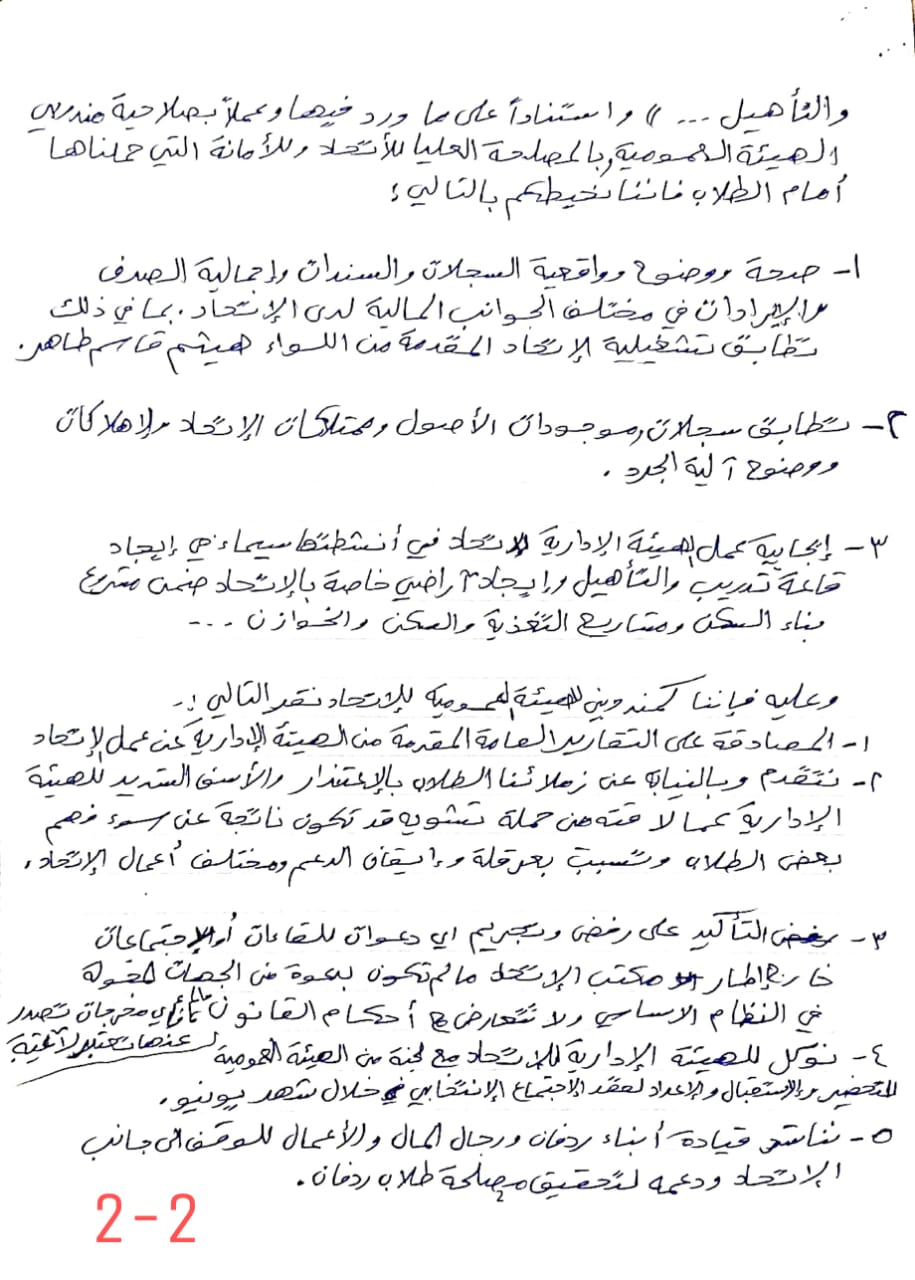 والتأهيل ... )) واستناداً على ما ورد فيها وعملاً بصلاحية مندوبي
الهيئة العمومية وبالمصلحة العليا للأتحاد وللأمانة التي حملناها
أمام الطلاب فاننا نحيطكم بالتالي :
١- صحة ووضوح وواقعية السجلات والسندات وإجمالية الصرف
والإيرادات في مختلف الجوانب المالية لدى الإتحاد. بما في ذلك
تطابق تشغيلية الإتحاد المقدمة من اللواء هيثم قاسم طاهر.
٢- تطابق سجلات وموجودات الأصول وممتلكات الإتحاد والاهلاكات
ووضوح آلية الجرد .
٣- إيجابية عمل الهيئة الإدارية للاتحاد في أنشطتها سيما في إيجاد
قاعة تدريب والتأهيل وإيجاد اراضي خاصة بالإتحاد ضمن مشروع
بناء السكن ومشاريع التغذية والسكن والخوازن ...
وعليه فإننا كمندوبي الهيئة العمومية للإتحاد نقر التالي :-
١- المصادقة على التقارير العامة المقدمة من الهيئة الإدارية عن عمل الإتحاد
٢- نتقدم وبالنيابة عن زملائنا الطلاب بالإعتذار والأسف الشديد للهيئة
الإدارية عما لاقته من حملة تشويه قد تكون ناتجة عن سوء فهم
بعض الطلاب وتسببت بعرقلة وإيقاف الدعم ومختلف أعمال الإتحاد.
٣- التأكيد على رفض وتجريم اي دعوات للقاءات أو الإجتماعات
خارج إطار مكتب الإتحاد مالم تكون بدعوة من الجهات المخولة
في النظام الاساسي ولا تتعارض مع أحكام القانون وأي مخرجات تصدر
عنها تعتبر لاغية
٤- نوكل للهيئة الإدارية للاتحاد مع لجنة من الهيئة العمومية
للتحضير والإستقبال والإعداد لعقد الإجتماع الإنتخابي في خلال شهر يونيو.
٥- نناشد قيادة أبناء ردفان ورجال المال والأعمال للوقوف الى جانب
الإتحاد ودعمه لتحقيق مصلحة طلاب ردفان.
2-2